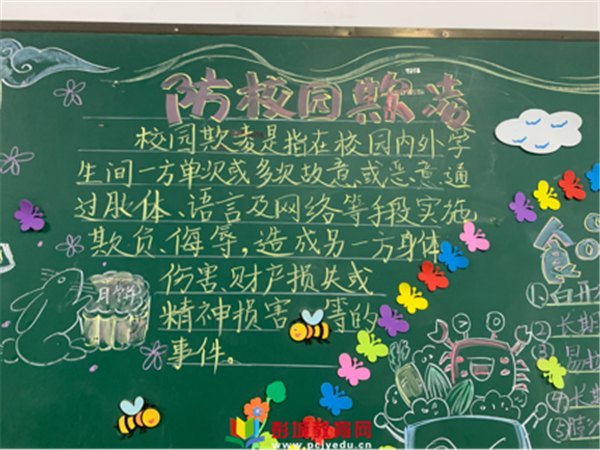 防校园欺凌
校园欺凌是指在校园内外学
生间一方单次或多次故意或恶意通
过肢体、语言及网络等手段实施
欺负、侮辱，造成另一方身体
伤害、财产损失或
精神损害 等的
事件。
月饼
食
①白开
②长期
③易
④长期
⑤
彭城教育网
www.pcjyedu.cn